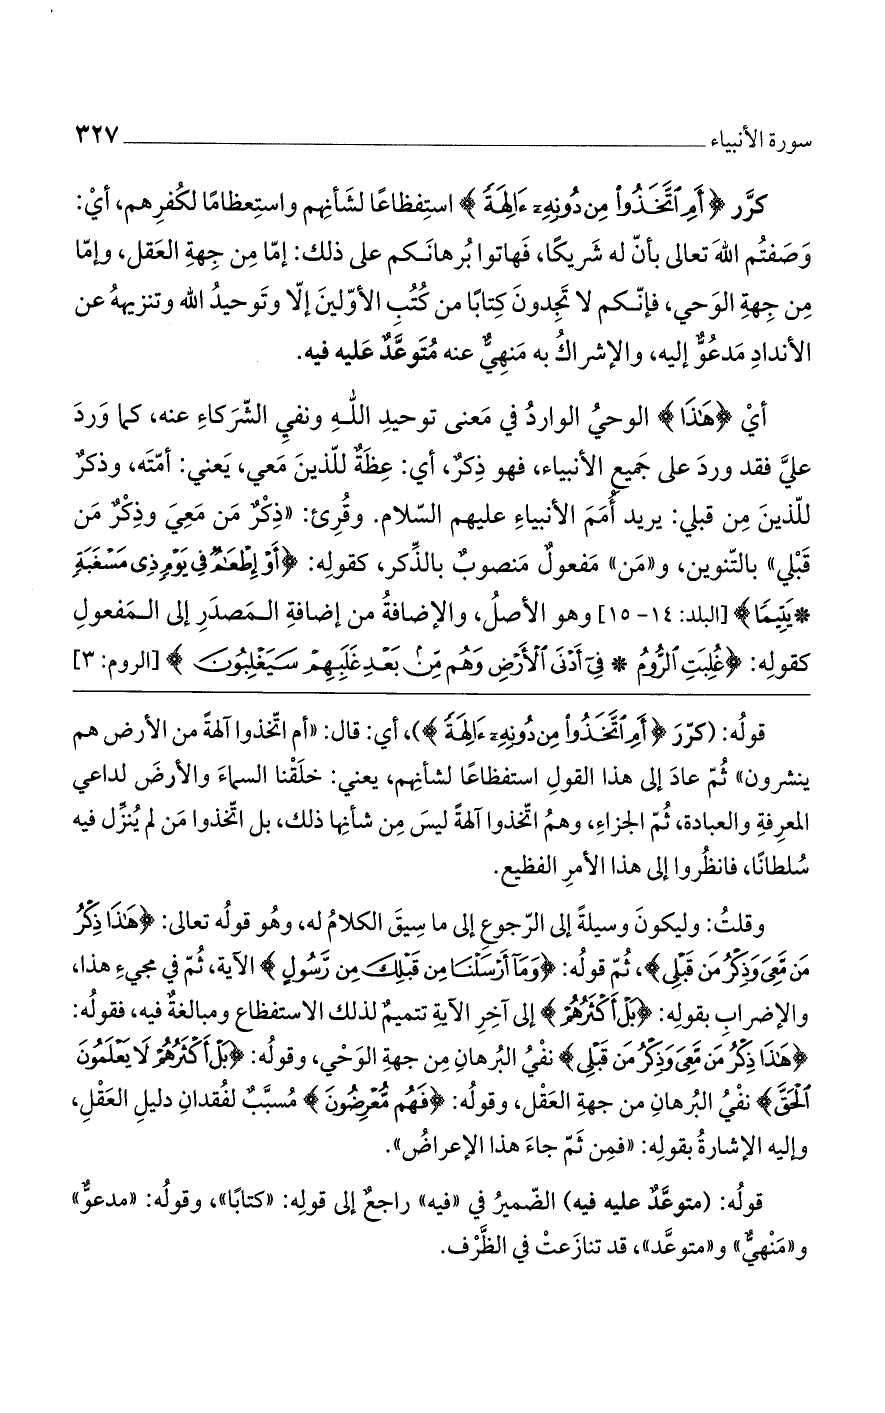 سورة الأنبياء ٣٢٧
كرَّر ﴿أَمِ ٱتَّخَذُوا۟ مِن دُونِهِۦٓ ءَالِهَةً﴾ استِفظاعًا لشَأنِهم واستِعظامًا لكُفرِهم، أيْ:
وَصَفتُم اللهَ تعالى بأنّ له شَريكًا، فَهاتوا بُرهانَكم على ذلك: إمّا مِن جِهةِ العَقل، وإمّا
مِن جِهةِ الوَحي، فإنّكم لا تَجِدونَ كِتابًا من كُتُبِ الأوّلينَ إلّا وتَوحيدُ الله وتنزيهُ عن
الأندادِ مَدعُوٌّ إليه، والإشراكُ به مَنهِيٌّ عنه مُتَوعَّدٌ عَليه فيه.
أيْ ﴿هَٰذَا﴾ الوحيُ الواردُ في مَعنى توحيدِ اللهِ ونفيِ الشّرَكاءِ عنه، كما وَردَ
عليَّ فقد وردَ على جَميعِ الأنبياء، فهو ذِكرٌ، أي: عِظَةٌ للّذينَ مَعي، يَعني: أمّتَه، وذكرٌ
للّذينَ مِن قبلي: يريد أُمَمَ الأنبياءِ عليهم السّلام. وقُرِئ: «ذِكْرٌ مَن مَعِيَ وذِكْرٌ مَن
قَبْلي» بالتّنوين، و«مَن» مَفعولٌ مَنصوبٌ بالذِّكر، كقولِه: ﴿أَوْ إِطْعَٰمٌ فِى يَوْمٍ ذِى مَسْغَبَةٍ
* يَتِيمًا﴾ [البلد: ١٤- ١٥] وهو الأصلُ، والإضافةُ من إضافةِ المَصدَرِ إلى المَفعولِ
كقولِه: ﴿غُلِبَتِ ٱلرُّومُ * فِىٓ أَدْنَى ٱلْأَرْضِ وَهُم مِّنۢ بَعْدِ غَلَبِهِمْ سَيَغْلِبُونَ﴾ [الروم: ٣]
قولُه: (كرّرَ ﴿أَمِ ٱتَّخَذُوا۟ مِن دُونِهِۦٓ ءَالِهَةً﴾)، أي: قال: «أم اتّخذوا آلهةً من الأرض هم
ينشرون» ثُمّ عادَ إلى هذا القولِ استفظاعًا لشأنِهم، يعني: خلَقْنا السماءَ والأرضَ لداعي
المعرِفةِ والعبادة، ثُمّ الجزاءِ، وهمُ اتّخذوا آلهةً ليسَ مِن شأنِها ذلك، بل اتّخذوا مَن لم يُنزِّل فيه
سُلطانًا، فانظُروا إلى هذا الأمرِ الفظيع.
وقلتُ: وليكونَ وسيلةً إلى الرّجوعِ إلى ما سِيقَ الكلامُ له، وهُو قولُه تعالى: ﴿هَٰذَا ذِكْرُ
مَن مَّعِىَ وَذِكْرُ مَن قَبْلِى﴾، ثُمّ قولُه: ﴿وَمَآ أَرْسَلْنَا مِن قَبْلِكَ مِن رَّسُولٍ﴾ الآية، ثُمّ في مجيءِ هذا،
والإضرابِ بقولِه: ﴿بَلْ أَكْثَرُهُمْ﴾ إلى آخِرِ الآيةِ تتميمٌ لذلك الاستفظاع ومبالغةٌ فيه، فقولُه:
﴿هَٰذَا ذِكْرُ مَن مَّعِىَ وَذِكْرُ مَن قَبْلِى﴾ نفْيُ البُرهانِ مِن جهةِ الوَحْي، وقولُه: ﴿بَلْ أَكْثَرُهُمْ لَا يَعْلَمُونَ
ٱلْحَقَّ﴾ نفْيُ البُرهانِ من جهةِ العَقْل، وقولُه: ﴿فَهُم مُّعْرِضُونَ﴾ مُسبَّبٌ لفُقدانِ دليلِ العَقْلِ،
وإليه الإشارةُ بقولِه: «فمِن ثَمّ جاءَ هذا الإعراضُ».
قولُه: (متوعَّدٌ عليه فيه) الضّميرُ في «فيه» راجعٌ إلى قولِه: «كتابًا»، وقولُه: «مدعوٌّ»
و«مَنْهيٌّ» و«متوعَّد»، قد تنازَعتْ في الظَّرْف.